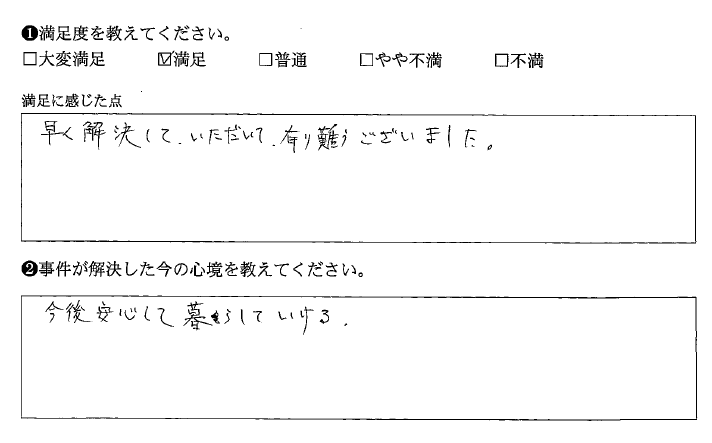 ❶満足度を教えてください。
□大変満足 ☑満足 □普通 □やや不満 □不満
満足に感じた点
早く解決して、いただいて、有り難うございました。
❷事件が解決した今の心境を教えてください。
今後安心して暮らしていける.